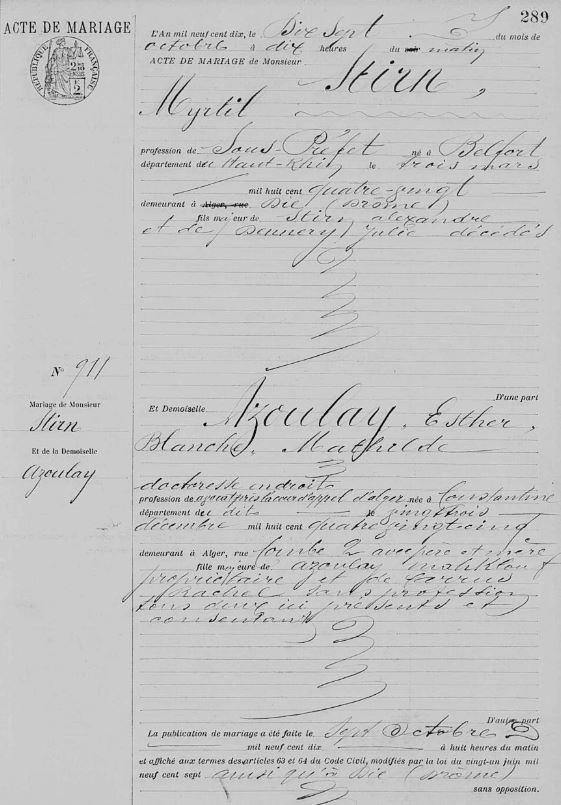 289
ACTE DE MARIAGE
RÉPUBLIQUE FRANÇAISE
L'An mil neuf cent dix, le Dix Sept du mois de
octobre à dix heures du matin
ACTE DE MARIAGE de Monsieur Stirn,
Myrtil
profession de Sous-Préfet né à Belfort
département du Haut-Rhin le trois mars
mil huit cent quatre-vingt
demeurant à Alger, rue Die (Drôme)
fils majeur de Stirn alexandre
et de Dennery Julie décédés
D'une part
N° 911
Mariage de Monsieur
Stirn
Et de la Demoiselle
Azoulay
Et Demoiselle Azoulay, Esther,
Blanche, Mathilde
doctoresse en droit
profession de avocat près la cour d'appel d'alger née à Constantine
département du dit le vingt trois
décembre mil huit cent quatre vingt cinq
demeurant à Alger, rue Combe 2 avec père et mère
fille majeure de azoulay
propriétaire et de
Rachel sans profession
tous deux ici présents et
consentants
D'autre part
La publication de mariage a été faite le sept Octobre
mil neuf cent dix à huit heures du matin
et affiché aux termes des articles 63 et 64 du Code Civil, modifiés par la loi du vingt-un juin mil
neuf cent sept ainsi qu'à Die (Drôme)
sans opposition.